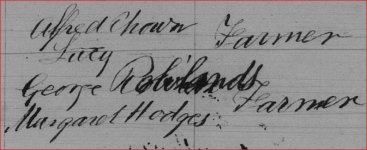 Alfred Chown Farmer
Lucy
George Rowlands Farmer
Margaret Hodges